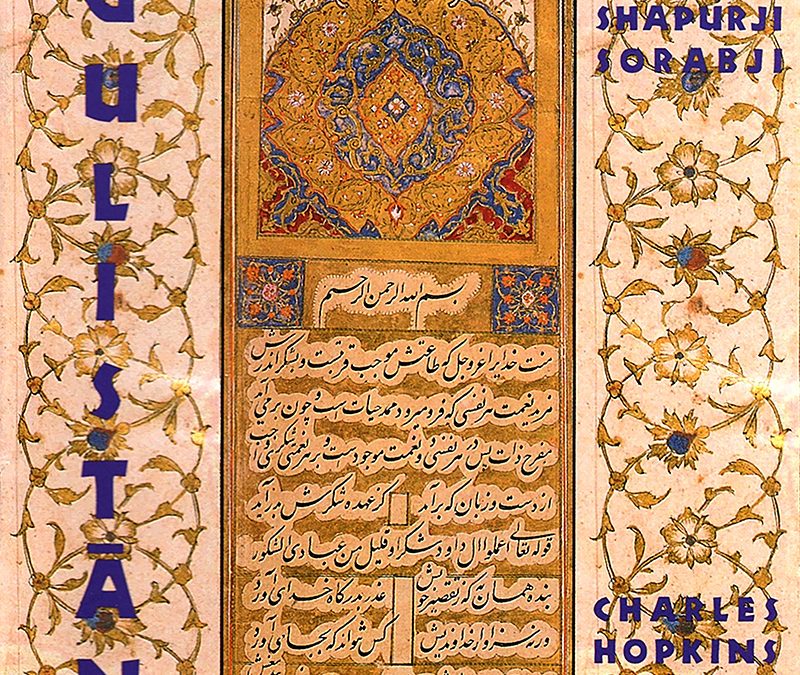 GULISTĀN
SHAPURJI
SORABJI
بسم الله الرحمن الرحیم
منت خدایرا عزوجل که طاعتش موجب قربتست و بشکر اندرش
مزید نعمت هر نفسی که فرو میرود ممد حیات ست و چون بر می آید
مفرح ذات پس در هر نفسی دو نعمت موجودست و بر هر نعمتی شکری واجب
از دست و زبان که برآید کز عهده شکرش بدرآید
قوله تعالی اعملوا ال داود شکرا و قلیل من عبادی الشکور
بنده همان به که ز تقصیر خویش عذر بدرگاه خدای آورد
ورنه سزاوار خداوندیش کس نتواند که بجای آورد
CHARLES
HOPKINS